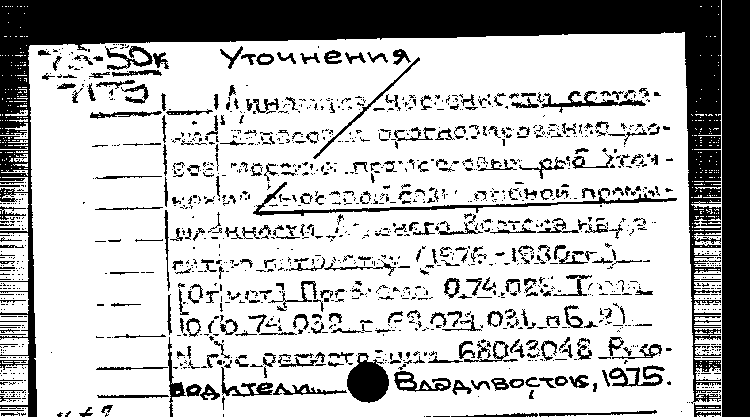 75-50к
Уточнения
Динамика численности, состоя-
ние запасов и прогнозирование уло-
вов морских промысловых рыб Уточ-
нения сырьевой базы рыбной промы-
шленности Дальнего Востока на де-
пятилетку (1976-1980гг.)
[Отчет] Проблема 0.74.028. Тема
10 (0.74.032
N гос. регистрации 68043048 Руко-
водители... Владивосток, 1975.